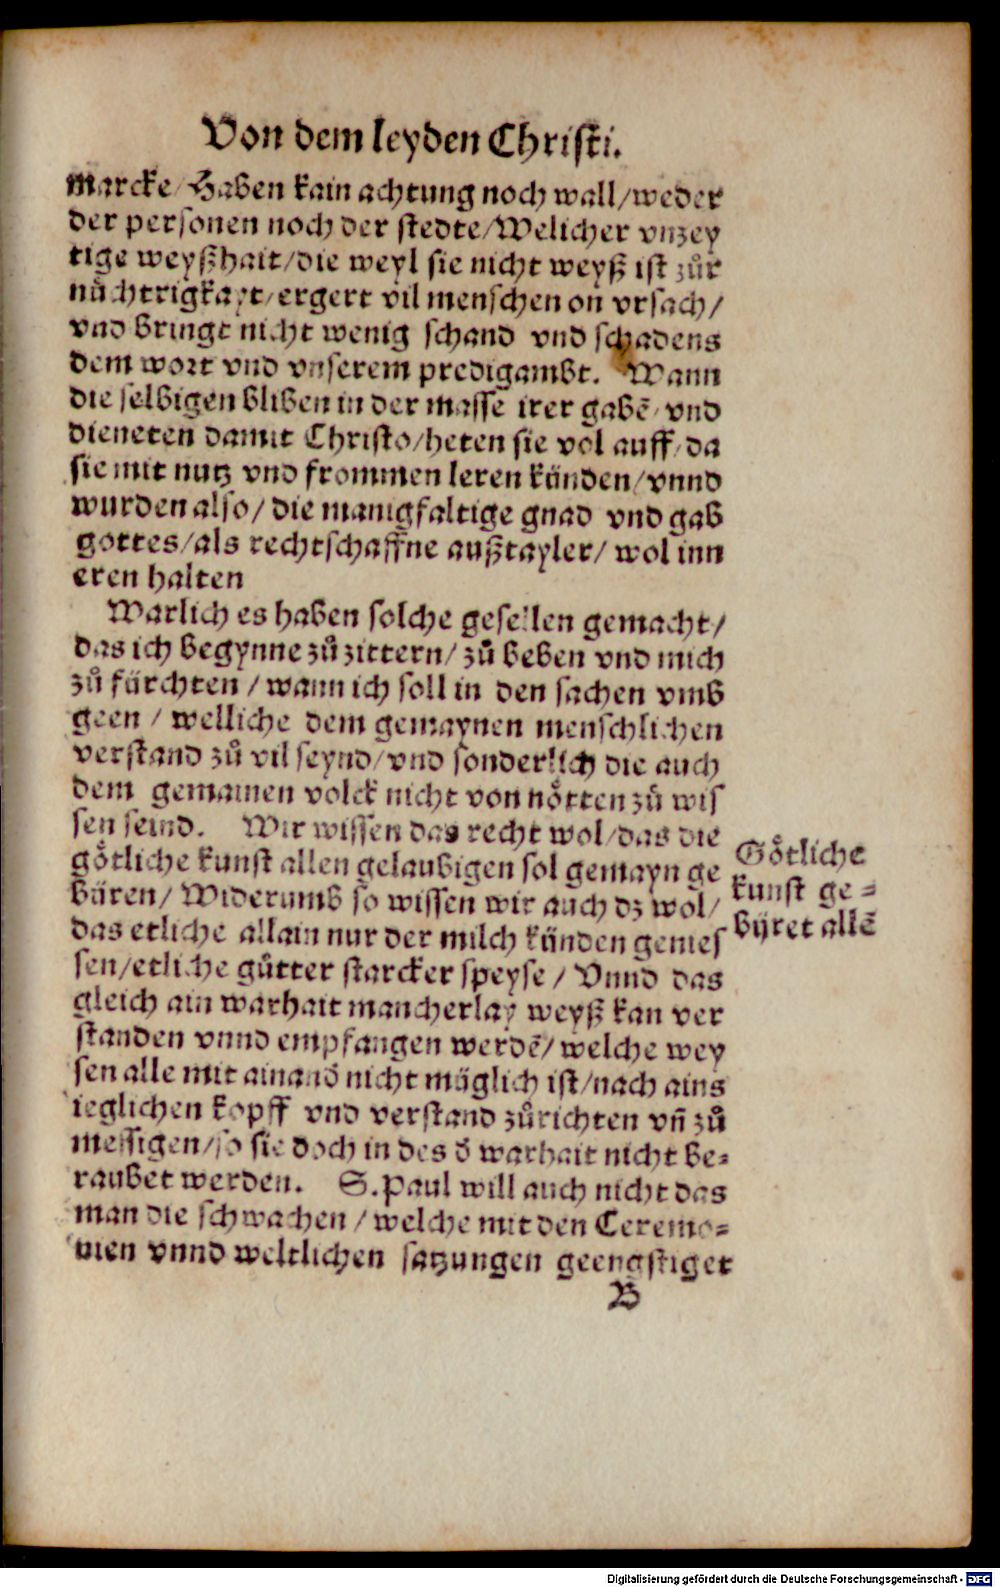 Von dem leyden Christi.
marcke/Haben kain achtung noch wall/weder
der personen noch der stedte/Welicher vnzey
tige weyßhait/die weyl sie nicht weyß ist zůr
nůchtrigkayt/ergert vil menschen on vrsach/
vnd bringt nicht wenig schand vnd schadens
dem wort vnd vnserem predigambt. Wann
die selbigen bliben in der masse irer gabē/vnd
dieneten damit Christo/heten sie vol auff/da
sie mit nutz vnd frommen leren künden/vnnd
wurden also/die manigfaltige gnad vnd gab
gottes/als rechtschaffne außtayler/wol inn
eren halten
Warlich es haben solche gesellen gemacht/
das ich begynne zů zittern/zů beben vnd mich
zů fürchten/wann ich soll in den sachen vmb
geen/welliche dem gemaynen menschlichen
verstand zů vil seynd/vnd sonderlich die auch
dem gemainen volck nicht von nötten zů wis
sen seind. Wir wissen das recht wol/das die
götliche kunst allen gelaubigen sol gemayn ge
büren/Widerumb so wissen wir auch dz wol/
das etliche allain nur der milch künden genies
sen/etliche gůtter starcker speyse/Vnnd das
gleich ain warhait mancherlay weyß kan ver
standen vnnd empfangen werdē/welche wey
sen alle mit ainand̄ nicht müglich ist/nach ains
ieglichen kopff vnd verstand zůrichten vn̄ zů
messigen/so sie doch in des d̄ warhait nicht be-
raubet werden. S.Paul will auch nicht das
man die schwachen/welche mit den Ceremo-
nien vnnd weltlichen satzungen geengstiget
B
Götliche
kunst ge-
büret allē
Digitalisierung gefördert durch die Deutsche Forschungsgemeinschaft - DFG